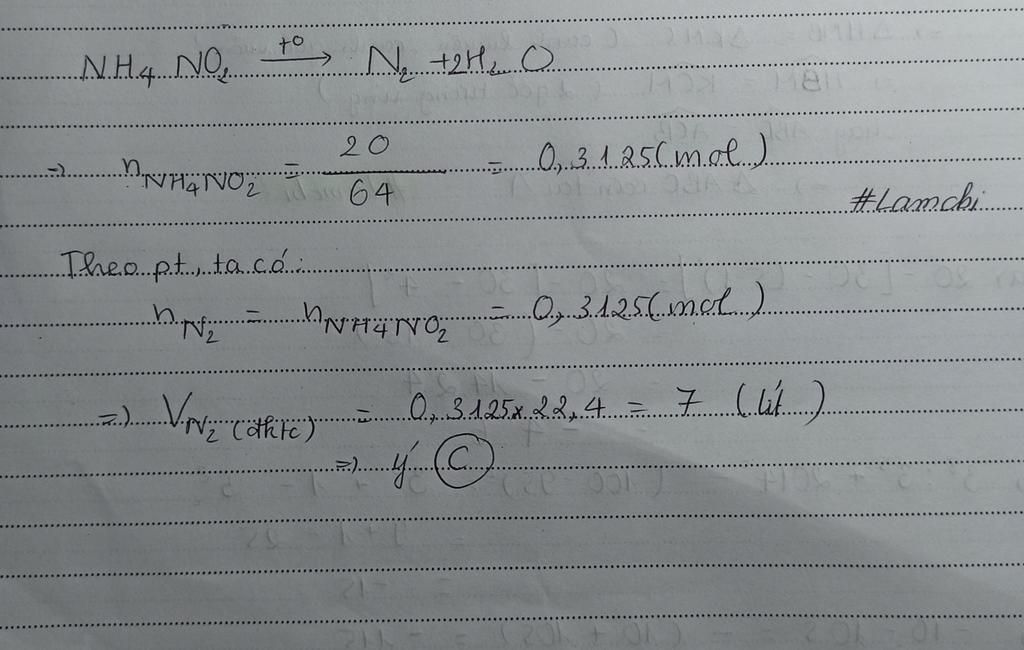 NH4 NO2 t0→ N2 + 2H2O
=> nNH4NO2 = 20/64 = 0,3125(mol)
#Lamchi
Theo pt, ta có:
nN2 = nNH4NO2 = 0,3125(mol)
=> VN2 (đktc) = 0,3125x22,4 = 7 (lít)
=> ý C